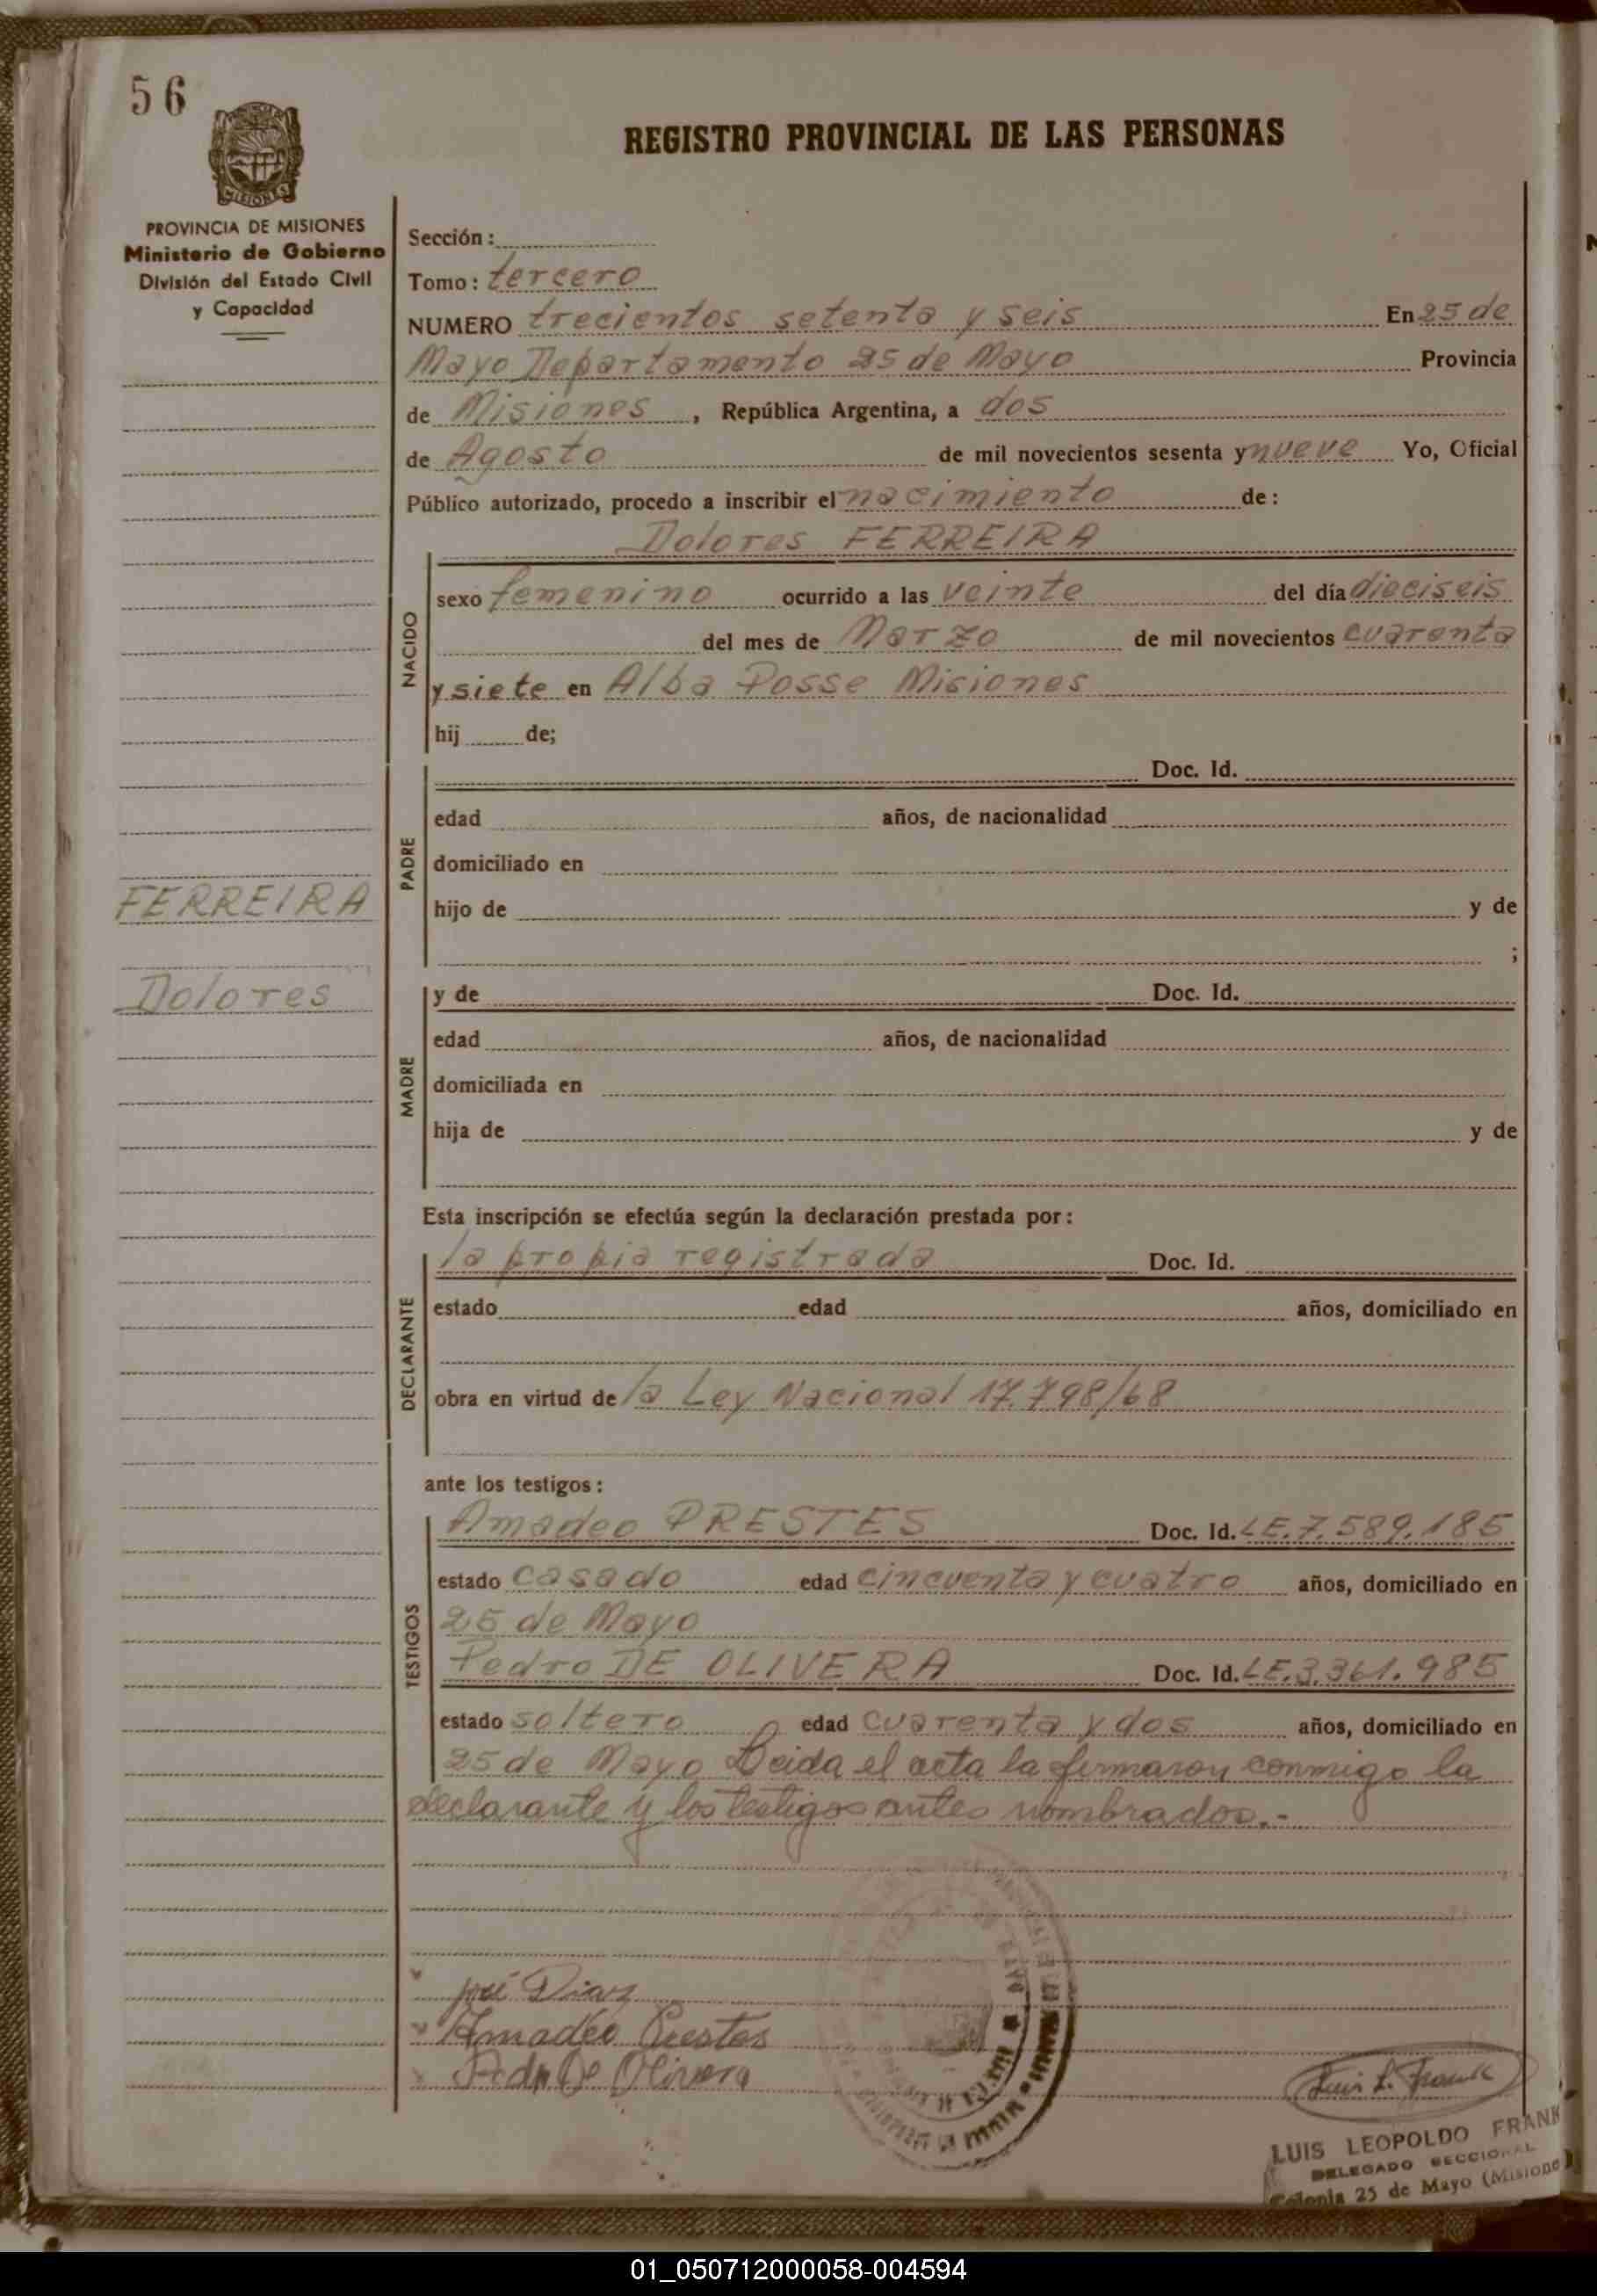 56
REGISTRO PROVINCIAL DE LAS PERSONAS
PROVINCIA DE MISIONES
Ministerio de Gobierno
División del Estado Civil
y Capacidad
Sección :
Tomo : tercero
NUMERO trecientos setenta y seis En 25 de
Mayo Departamento 25 de Mayo Provincia
de Misiones , República Argentina, a dos
de Agosto de mil novecientos sesenta y nueve Yo, Oficial
Público autorizado, procedo a inscribir el nacimiento de :
Dolores FERREIRA
NACIDO
sexo femenino ocurrido a las veinte del día dieciseis
del mes de Marzo de mil novecientos cuarenta
y siete en Alba Posse Misiones
hij de;
PADRE
Doc. Id.
edad años, de nacionalidad
domiciliado en
hijo de y de
;
FERREIRA
Dolores
MADRE
y de Doc. Id.
edad años, de nacionalidad
domiciliada en
hija de y de
Esta inscripción se efectúa según la declaración prestada por :
DECLARANTE
la propia registrada Doc. Id.
estado edad años, domiciliado en
obra en virtud de la Ley Nacional 17.798/68
ante los testigos :
TESTIGOS
Amadeo PRESTES Doc. Id. LE.7.589.185
estado casado edad cincuenta y cuatro años, domiciliado en
25 de Mayo
Pedro DE OLIVERA Doc. Id. LE.3.361.985
estado soltero edad cuarenta y dos años, domiciliado en
25 de Mayo Leida el acta la firmaron conmigo la
declarante y los testigos antes nombrados.-
José Diaz
Amadeo Prestes
Pedro De Olivera
Luis L. Frank
LUIS LEOPOLDO FRANK
DELEGADO SECCIONAL
Colonia 25 de Mayo (Misiones)
01_050712000058-004594